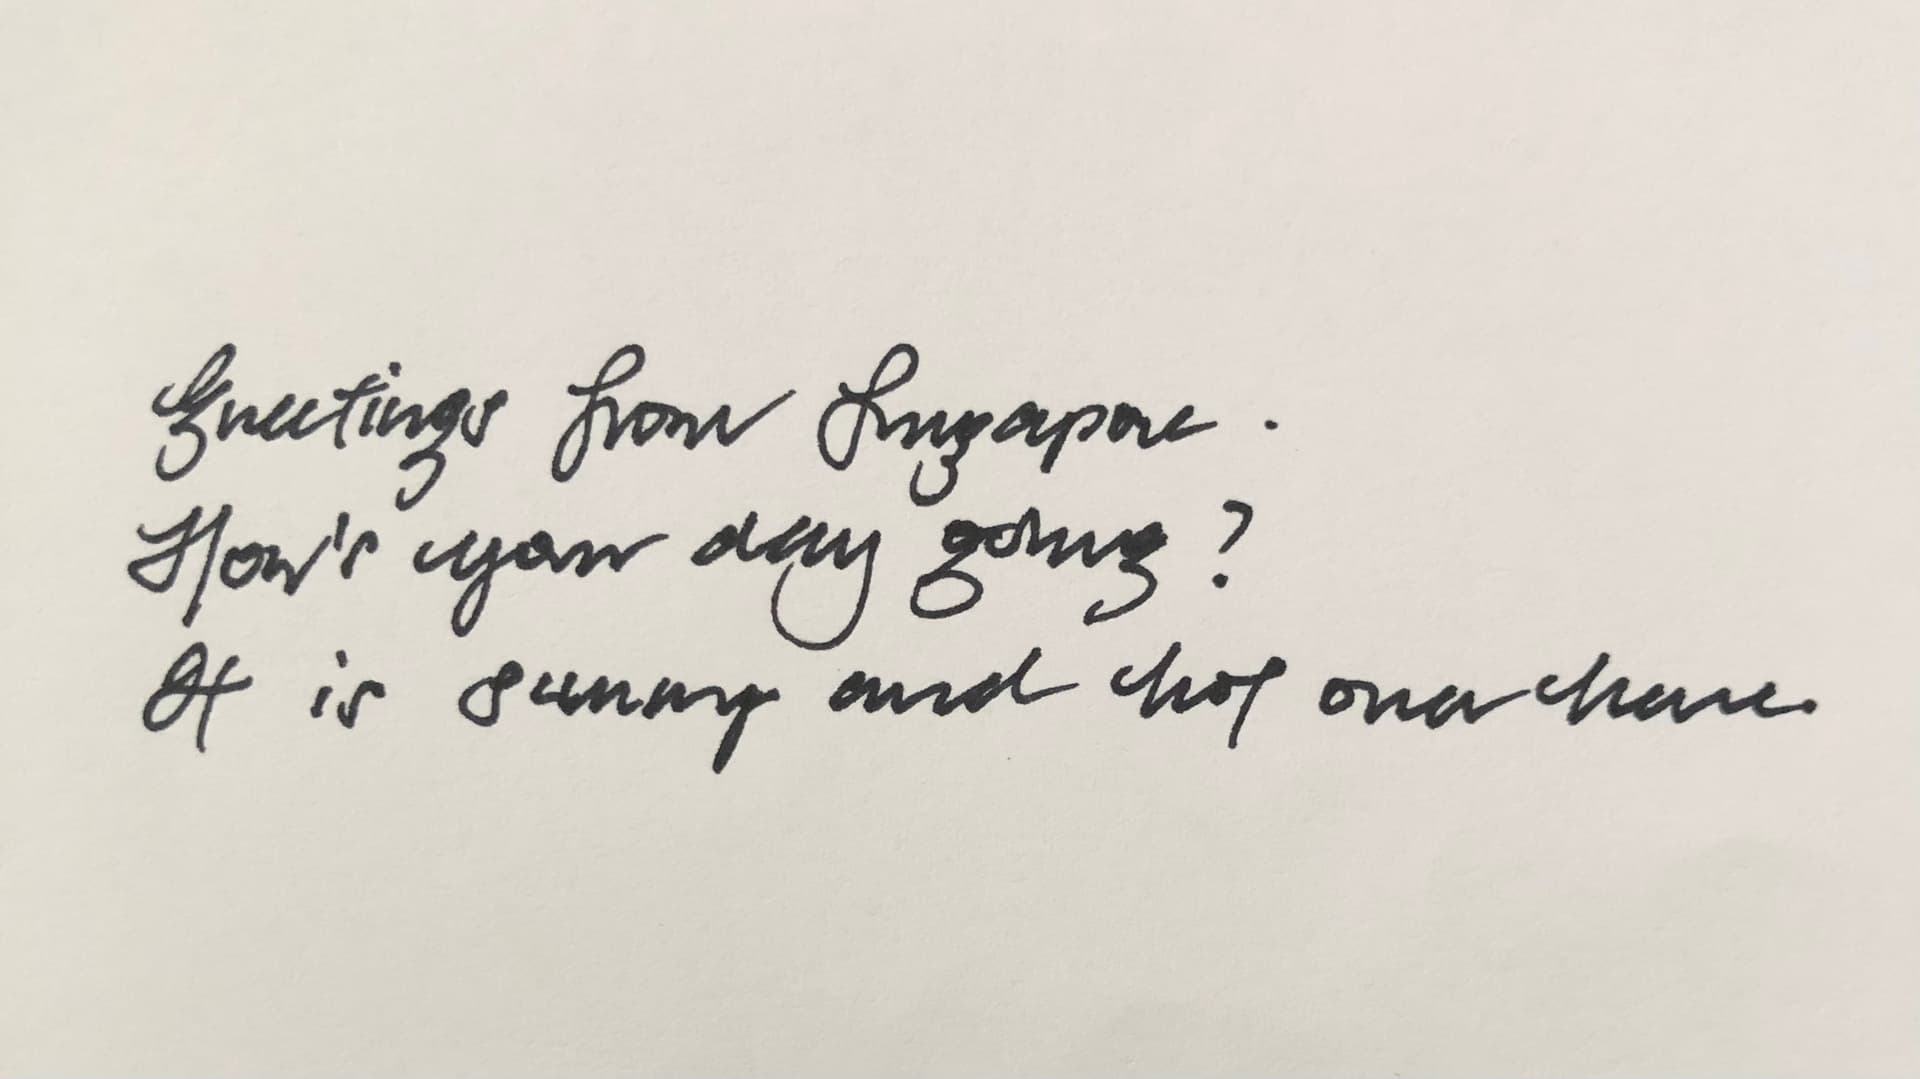 Greetings from Singapore.
How's your day going?
It is sunny and hot over here.